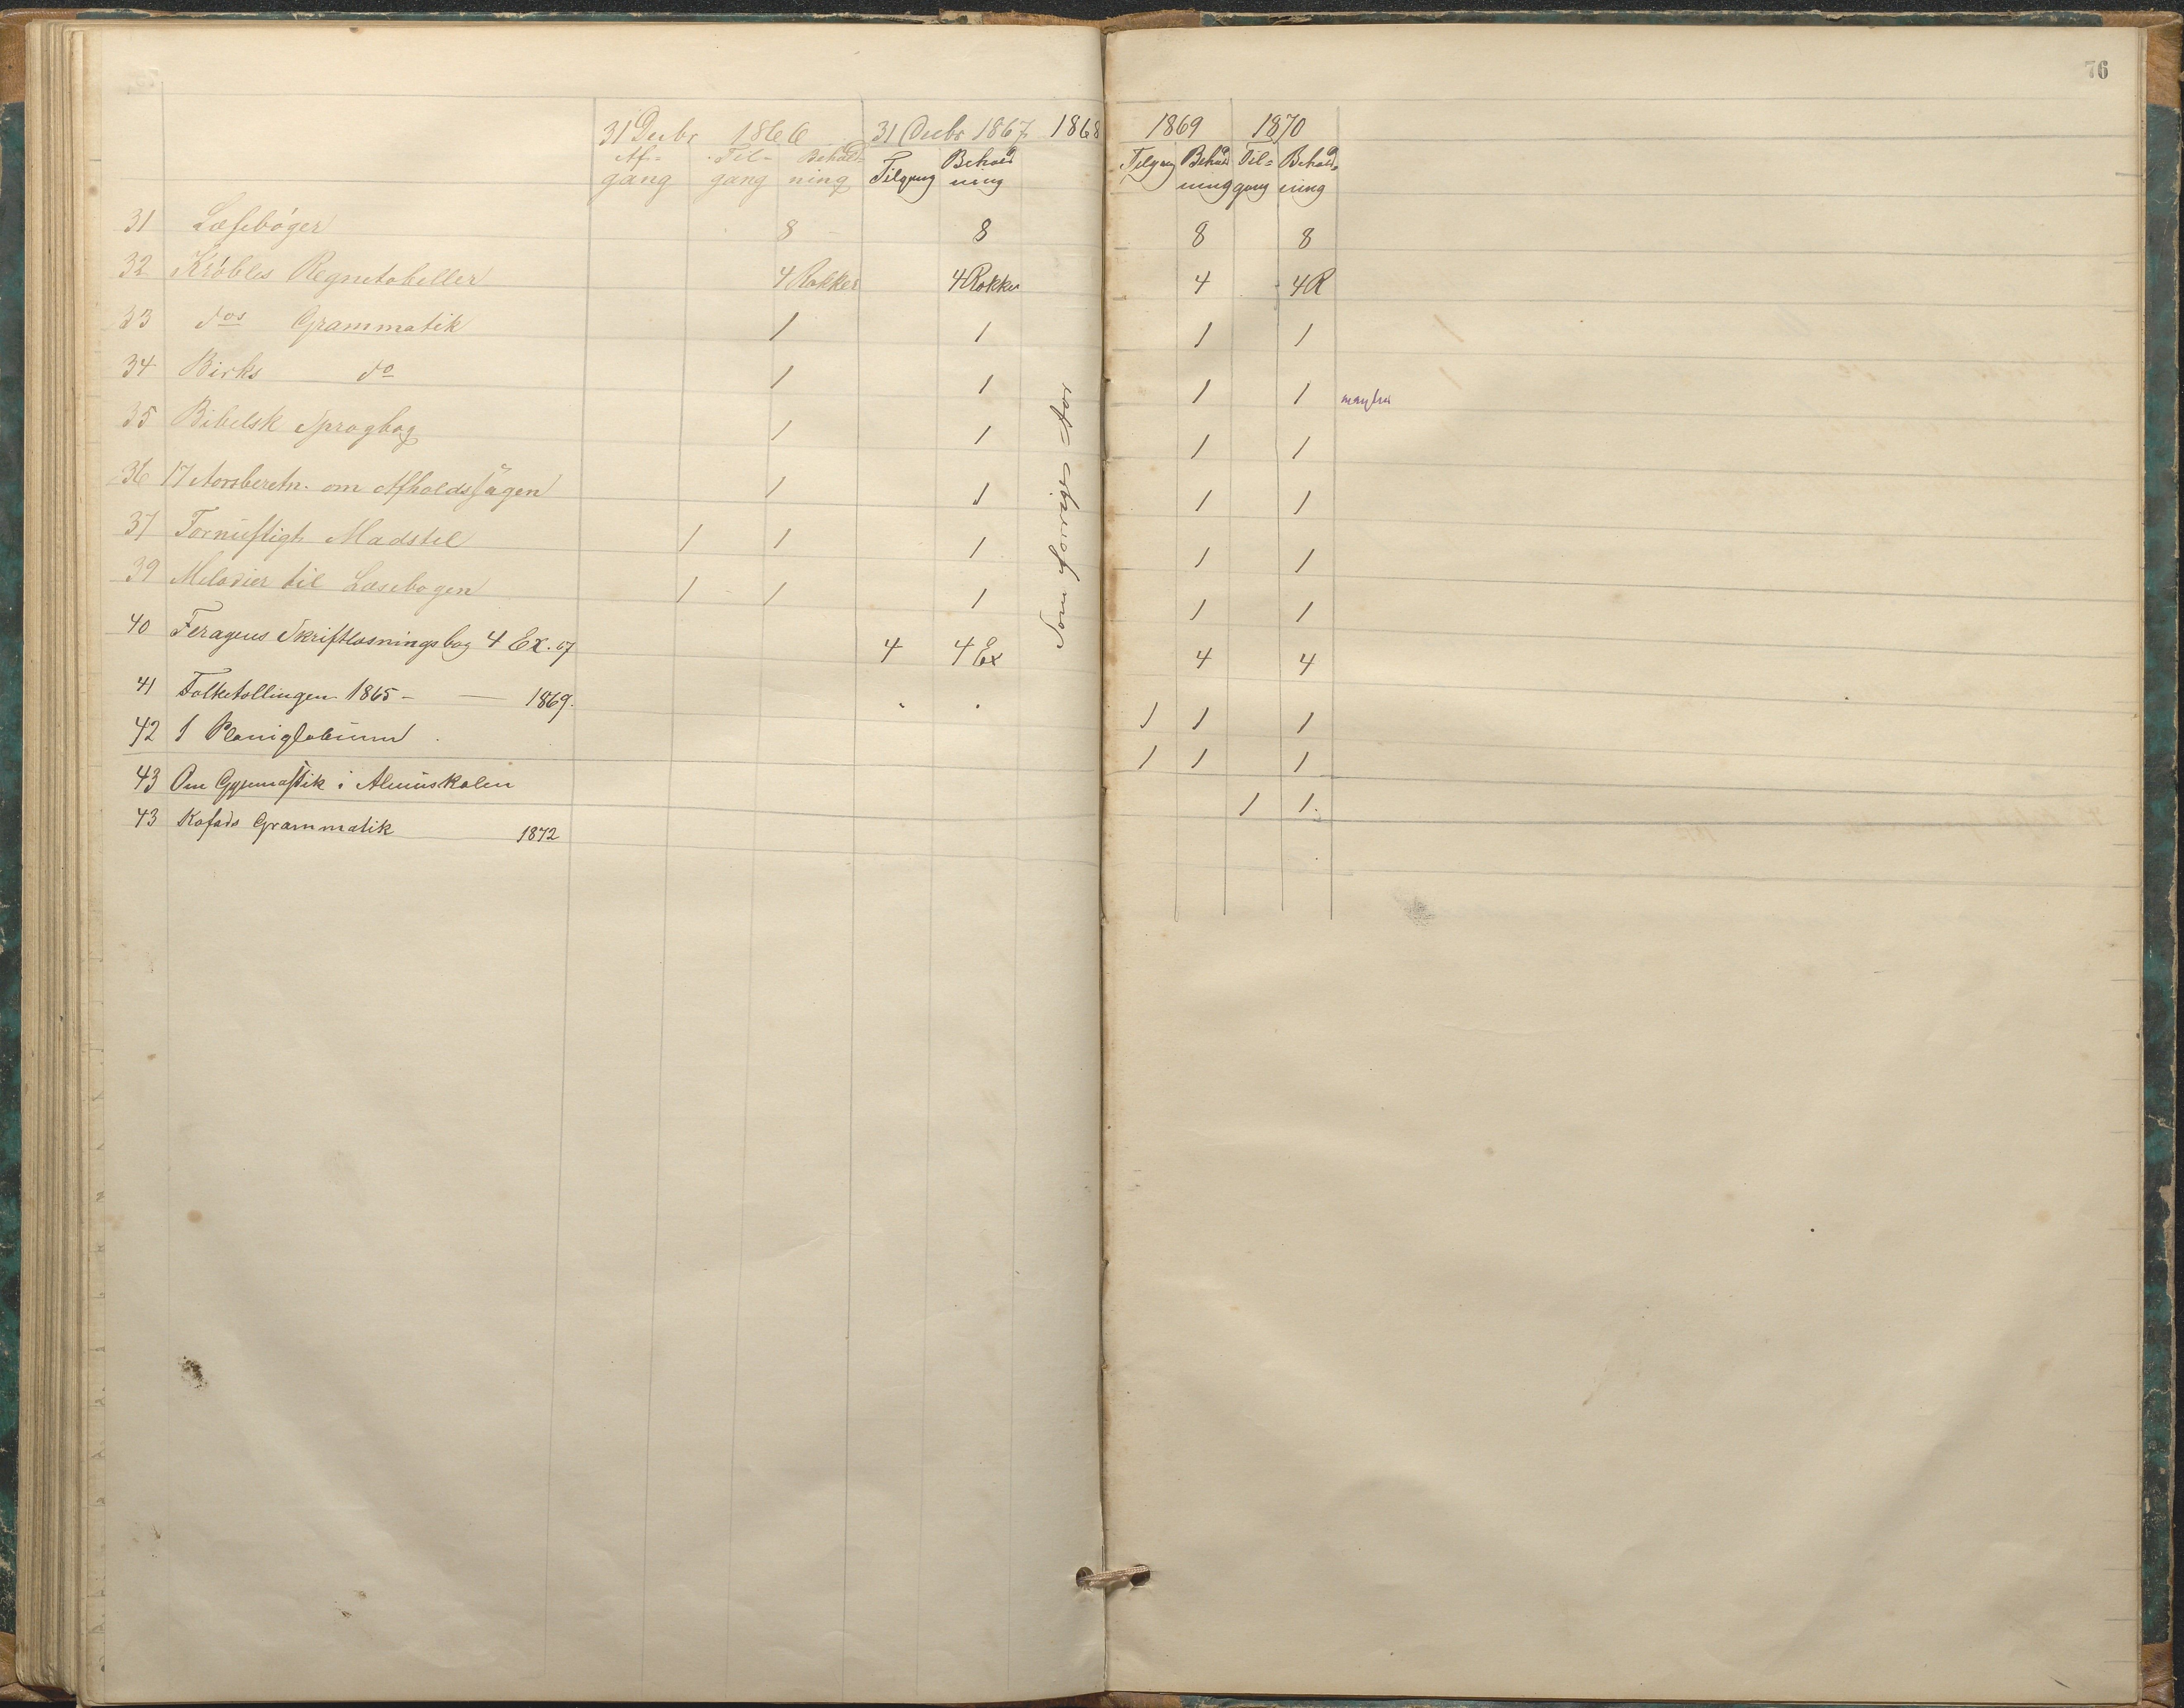 76
31 Decbr 1866 31 Decbr 1867 1868 1869 1870
Af= Til- Behold= Tilgang Behold Tilgang Behold Til= Behold=
gang gang ning ning ning gang ning
31 Læsebøger 8 8 8 8
32 Kröbles Regnetabeller 4 Rækker 4 Rækker 4 4R
33 dos Grammatik 1 1 1 1
34 Birks do 1 1 1 1 mangler
35 Bibelsk Sprogbog 1 1 1 1
36 17 Aarsberetn. om Afholdssagen 1 1 1 1
37 Fornuftigt Madstel 1 1 1 1 1
39 Melodier til Læsebogen 1 1 1 1 1
40 Feragens Skriftlæsningsbog 4 Ex. 67 4 4 Ex 4 4
41 Folketællingen 1865 - — 1869. 1 1 1
42 1 Planiglobium 1 1 1
43 Om Gymnastik i Almuskolen 1 1
43 Kofads Grammatik 1872
Som forriges Aar